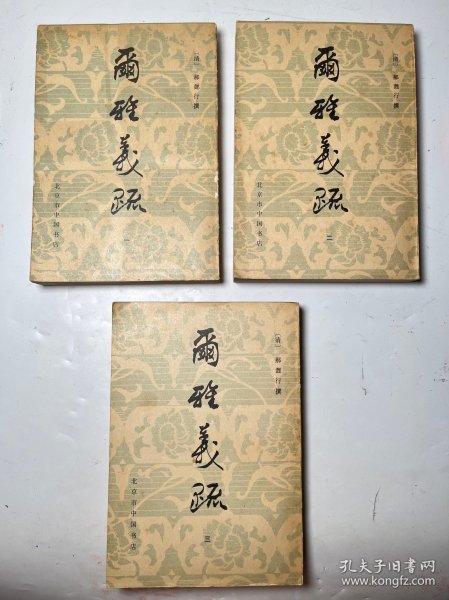 〔清〕郝懿行撰
爾雅義疏
北京市中国书店
一
〔清〕郝懿行撰
爾雅義疏
北京市中国书店
二
〔清〕郝懿行撰
爾雅義疏
北京市中国书店
三
孔夫子旧书网
www.kongfz.com